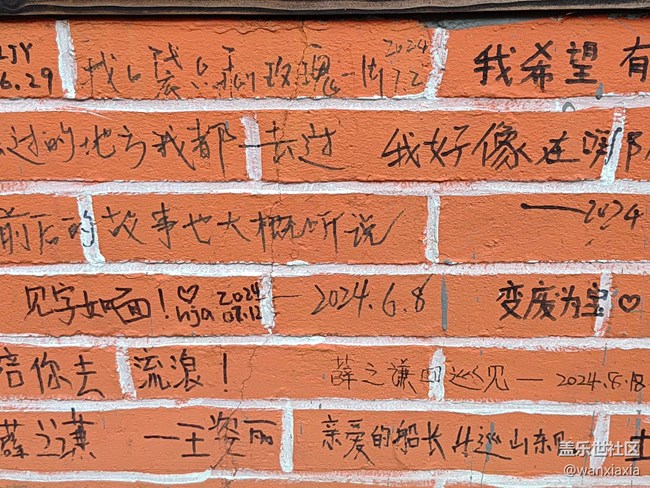 LJY 6.29
2024
我希望有
过的地方我都去过 我好像在哪
前后的故事也大概听说 —2024
见字如面！♡ hja 2024 08.12 2024.6.8 变废为宝♡
陪你去流浪！ 薛之谦回巡见—2024.8.18
薛之谦 —王姿丽 亲爱的船长4巡山东见
盖乐世社区
@wanxiaxia